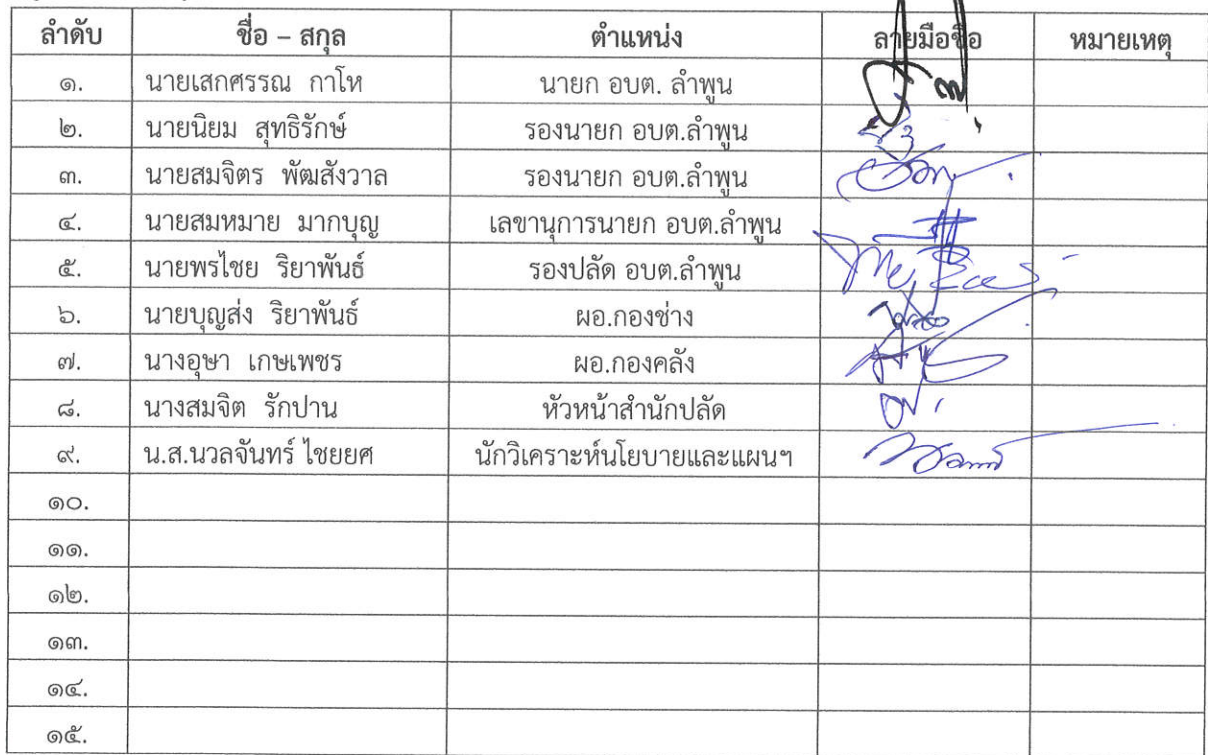 ลำดับ ชื่อ – สกุล ตำแหน่ง ลายมือชื่อ หมายเหตุ
๑. นายเสกศรรณ กาโห นายก อบต. ลำพูน
๒. นายนิยม สุทธิรักษ์ รองนายก อบต.ลำพูน
๓. นายสมจิตร พัฒสังวาล รองนายก อบต.ลำพูน
๔. นายสมหมาย มากบุญ เลขานุการนายก อบต.ลำพูน
๕. นายพรไชย ริยาพันธ์ รองปลัด อบต.ลำพูน
๖. นายบุญส่ง ริยาพันธ์ ผอ.กองช่าง
๗. นางอุษา เกษเพชร ผอ.กองคลัง
๘. นางสมจิต รักปาน หัวหน้าสำนักปลัด
๙. น.ส.นวลจันทร์ ไชยยศ นักวิเคราะห์นโยบายและแผนฯ
๑๐.
๑๑.
๑๒.
๑๓.
๑๔.
๑๕.